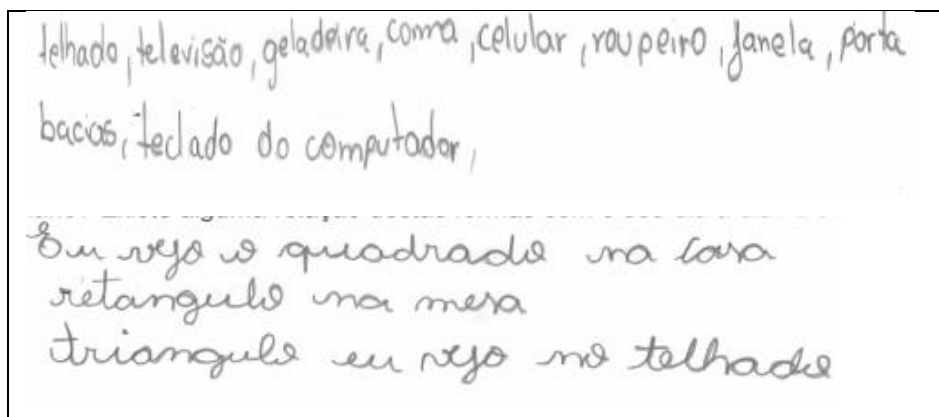 telhado, televisão, geladeira, coma, celular, roupeiro, janela, porta
bacios, teclado do computador,
Eu vejo o quadrado na casa
retangulo na mesa
triangulo eu vejo no telhado